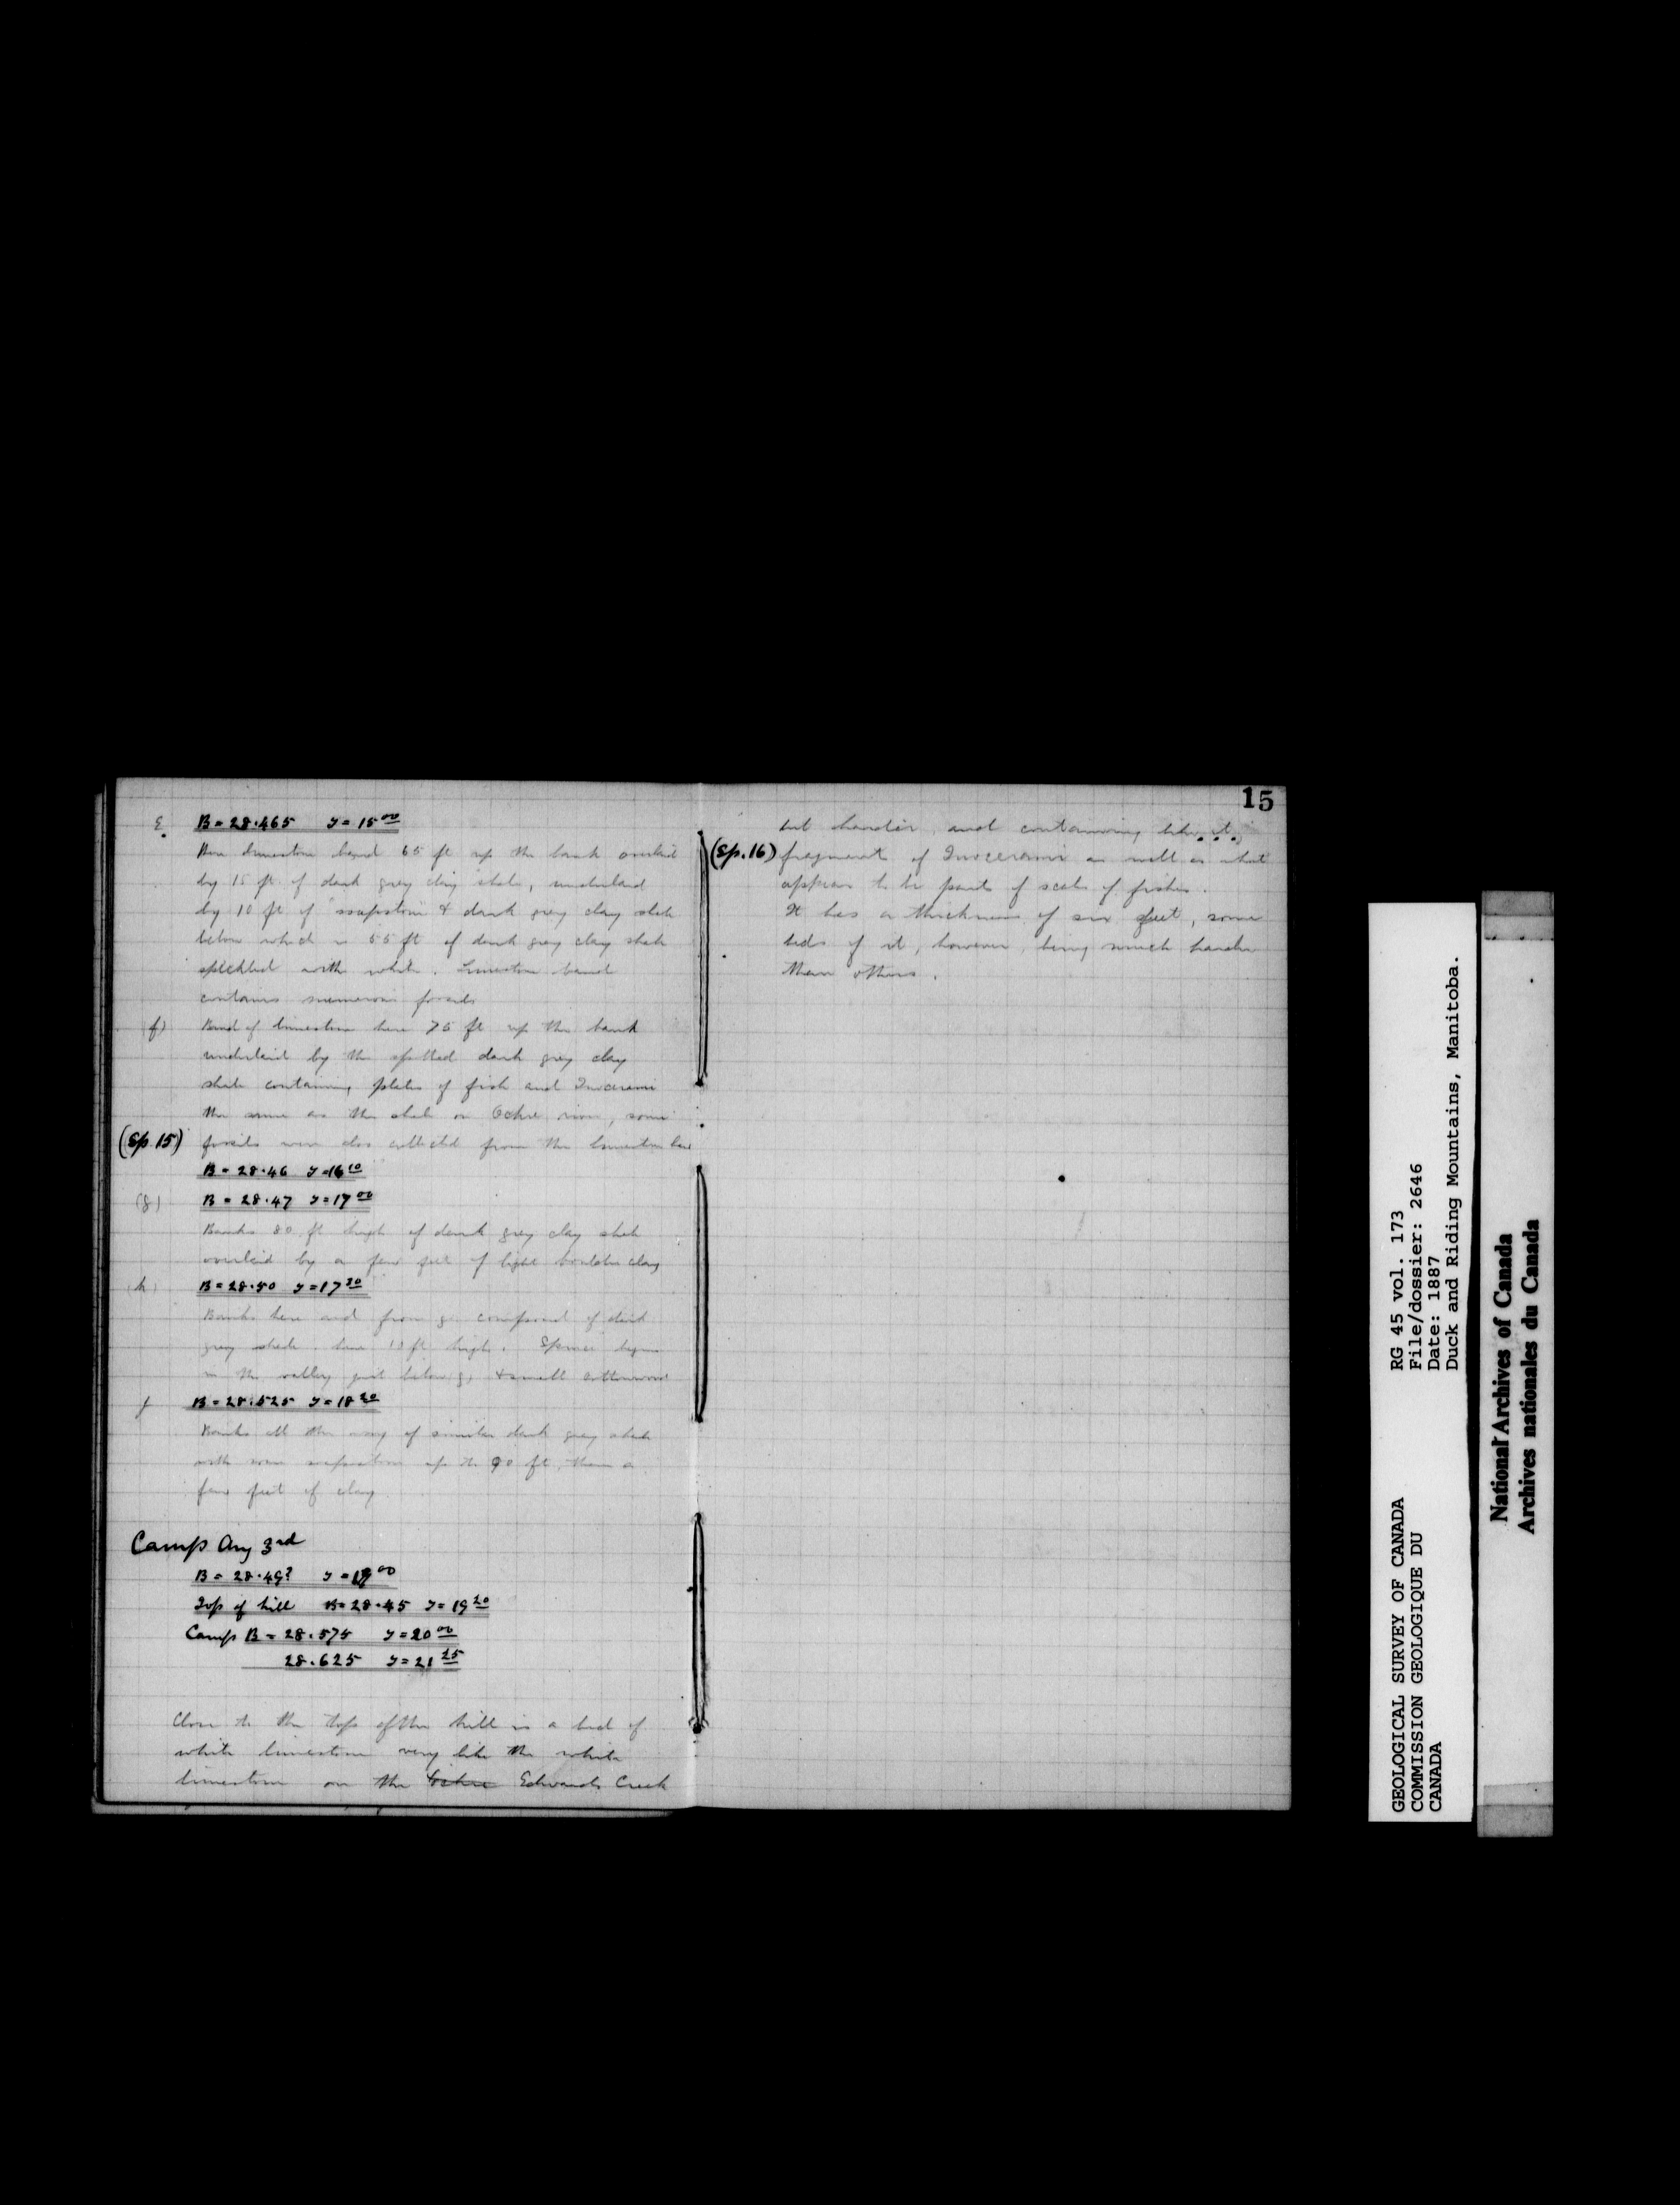 e. B = 28.465 T = 15 00
Here limestone band 65 ft up the bank overlaid
by 15 ft of dark grey clay shale, underlaid
by 10 ft of soapstone & dark grey clay shale
below which is 55 ft of dark grey clay shale
speckled with white. Limestone band
contains numerous fossils
(f) Band of limestone here 75 ft up the bank
underlaid by the spotted dark grey clay
shale containing plates of fish and Inocerami
the same as the shale on Ochre river, some
(Sp. 15) fossils were also collected from the limestone here
B = 28.46 T = 16 10
(g) B = 28.47 T = 17 00
Banks 80 ft high of dark grey clay shale
overlaid by a few feet of light boulder clay
(h) B = 28.50 T = 17 20
Banks here and from g. composed of dark
grey shale, here 10 ft high. Spruce begins
in the valley just below g, & small cottonwood
j B = 28.525 T = 18 20
Banks all the way of similar dark grey shale
with some soapstone up to 90 ft, then a
few feet of clay
Camp Aug 3rd
B = 28.49? T = 19 00
Top of hill B = 28.45 T = 19 20
Camp B = 28.575 T = 20 00
28.625 T = 21 25
Close to the top of the hill is a bed of
white limestone very like the white
limestone on the Ochre Edwards Creek
15
but harder, and containing, like it,
(Sp. 16) fragments of Inocerami as well as what
appears to be parts of scales of fishes.
It has a thickness of six feet, some
beds of it, however, being much harder
than others.
GEOLOGICAL SURVEY OF CANADA
COMMISSION GEOLOGIQUE DU
CANADA
RG 45 vol. 173
File/dossier: 2646
Date: 1887
Duck and Riding Mountains, Manitoba.
National Archives of Canada
Archives nationales du Canada